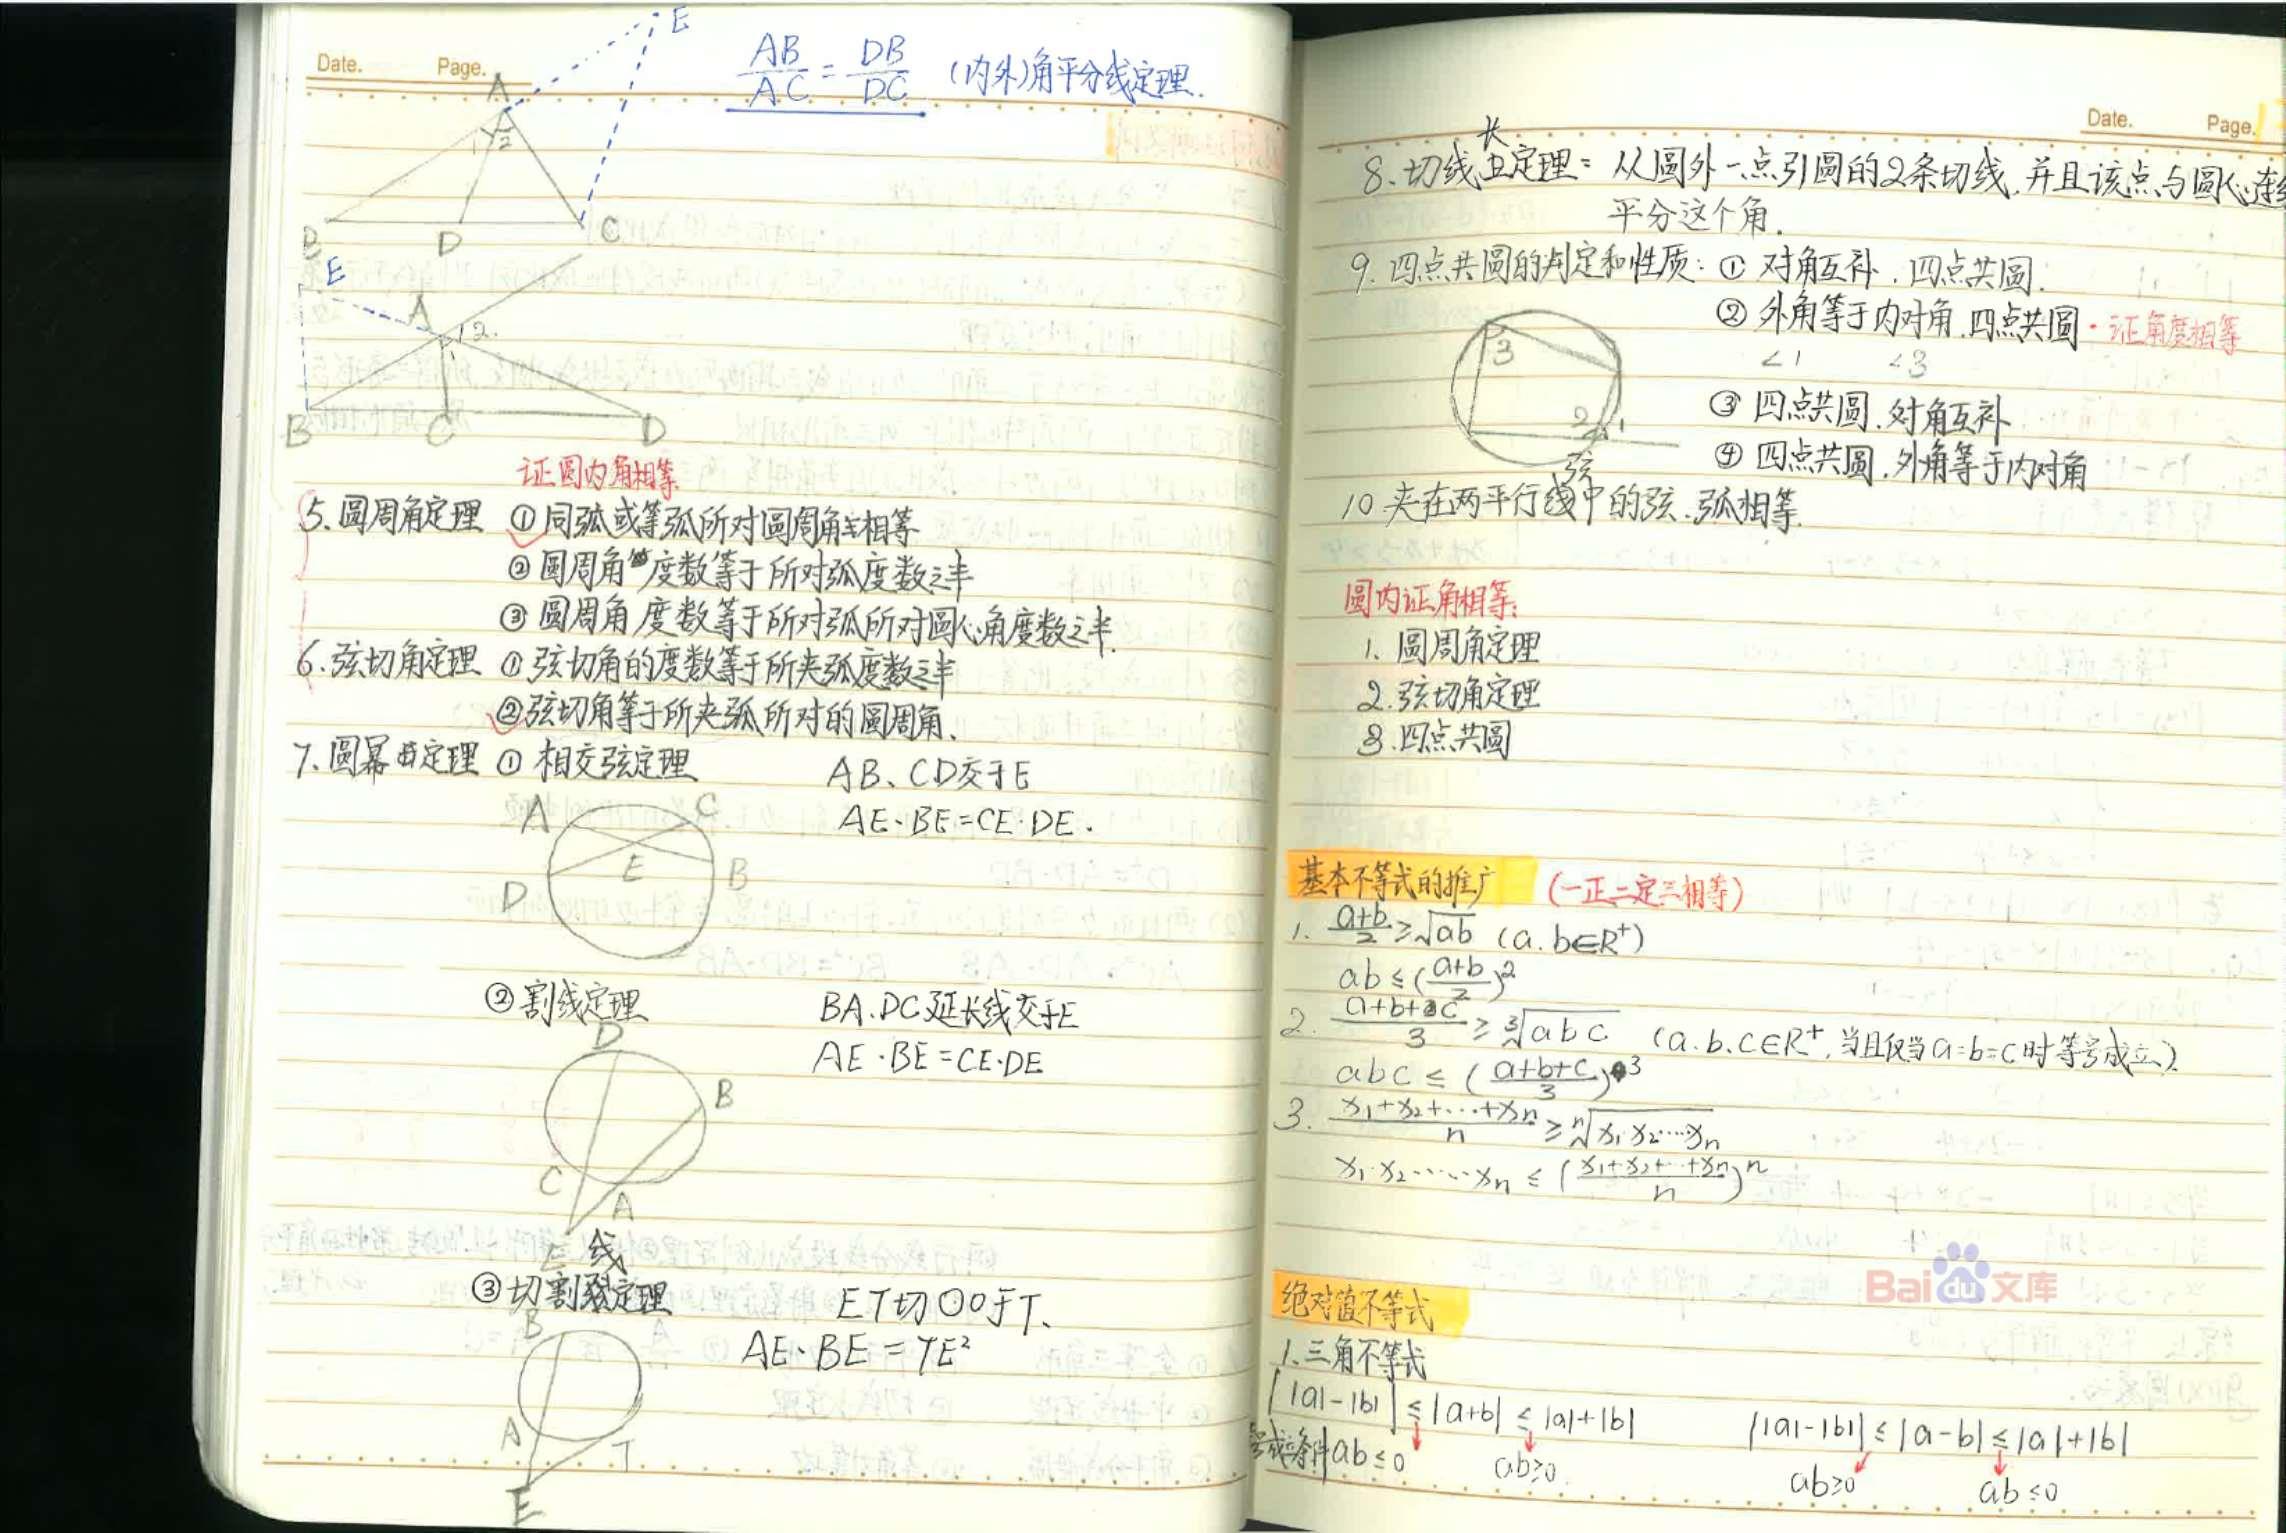 Date. Page.
E
A
1 2
B D C
AB/AC = DB/DC (内外)角平分线定理.
E
A
1 2.
B C D
证圆内角相等
5.圆周角定理 ①同弧或等弧所对圆周角相等
②圆周角度数等于所对弧度数之半
③圆周角度数等于所对弧所对圆心角度数之半.
6.弦切角定理 ①弦切角的度数等于所夹弧度数之半
②弦切角等于所夹弧所对的圆周角.
7.圆幂定理 ①相交弦定理 AB、CD交于E
AE·BE=CE·DE.
A C
E
D B
②割线定理 BA.DC延长线交于E
AE·BE=CE·DE
D
B
C
A
E
线
③切割定理 ET切⊙O于T.
AE·BE=TE²
B
A T
E
Date. Page.
长
8.切线定理: 从圆外一点引圆的2条切线.并且该点与圆心连线
平分这个角.
9.四点共圆的判定和性质: ①对角互补.四点共圆.
②外角等于内对角.四点共圆·证角度相等
∠1 ∠3
3
2 1
③四点共圆.对角互补
④四点共圆.外角等于内对角
弦
10.夹在两平行线中的弦.弧相等.
圆内证角相等:
1.圆周角定理
2.弦切角定理
3.四点共圆
基本不等式的推广 (一正二定三相等)
1. (a+b)/2 ≥ √ab (a.b∈R⁺)
ab ≤ ((a+b)/2)²
2. (a+b+c)/3 ≥ ³√abc (a.b.c∈R⁺,当且仅当a=b=c时等号成立)
abc ≤ ((a+b+c)/3)³
3. (x₁+x₂+⋯+xₙ)/n ≥ ⁿ√x₁x₂⋯xₙ
x₁·x₂⋯⋯xₙ ≤ ((x₁+x₂+⋯+xₙ)/n)ⁿ
Baidu文库
绝对值不等式
1.三角不等式
||a|-|b|| ≤ |a+b| ≤ |a|+|b| ||a|-|b|| ≤ |a-b| ≤ |a|+|b|
成立条件 ab≤0 ab≥0. ab≥0 ab≤0